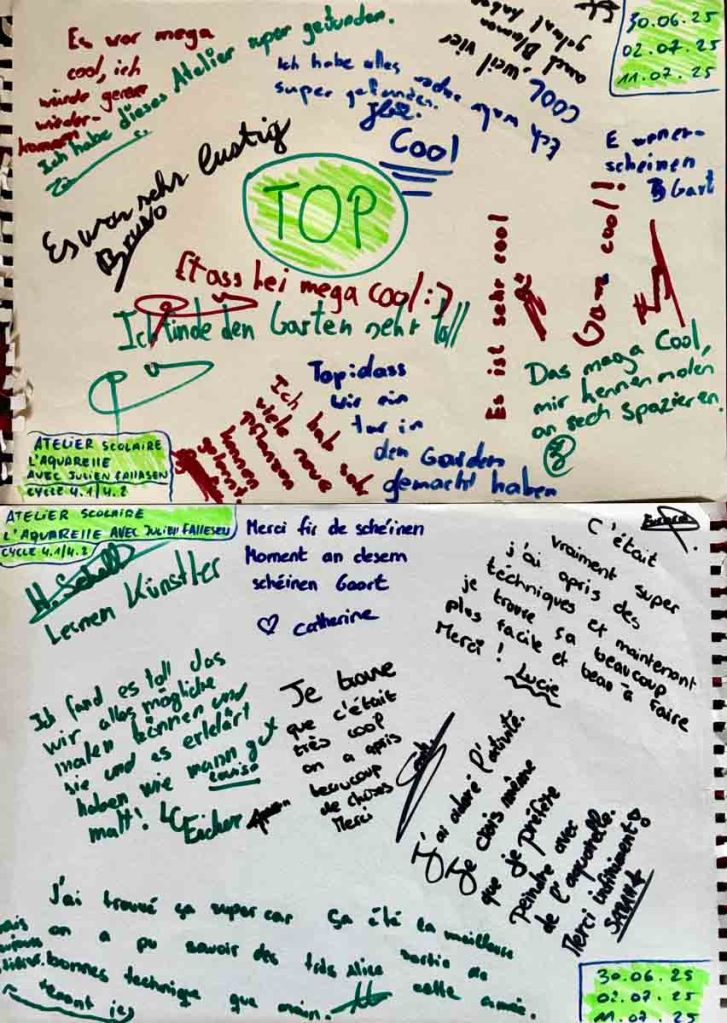 Es wor mega
cool, ich
würde gerene
wieder-
kommen
Ich habe dieses Atelier super gefunden.
Ich habe alles
super gefunden.
cool, weil vier
and Blumen
gemalt haben
30.06.25
02.07.25
11.07.25
Cool
Es war sehr lustig
Bruno
TOP
E wonner-
scheinen
Gart
Et ass hei mega cool:)
Ich finde den Garten sehr toll
Es ist sehr cool
Ganz cool!
Das mega Cool,
mir kennen molen
an sech spazieren.
Top: dass
wir ein
tour in
den Garden
gemacht haben
Ich hab sehr
viele neue
ATELIER SCOLAIRE
L'AQUARELLE
AVEC JULIEN FALLASEN
CYCLE 4.1/4.2
ATELIER SCOLAIRE
L'AQUARELLE AVEC JULIEN FALLESEN
CYCLE 4.1/4.2
Lernen Künstler
Merci fir de schéinen
Moment an desem
schéinen Goort
♡ Catherine
C'était
vraiment super
j'ai apris des
téchniques et maintenant
je trouve sa beaucoup
plus facile et beau à faire
Merci! Lucie
Ich fand es toll das
wir alles mögliche
malen können und
sie und es erklärt
haben wie mann gut
malt!
Louise
Eicher
Je trouve
que c'était
très cool
on a apris
beaucoup
de choses
Merci
J'ai adoré l'activité.
Je crois même
que je préfère
peindre avec
de l'aquarelle.
Merci infiniment!
J'ai trouvé ça super car
on a pu savoir des très
bonnes technique que main-
tenant je
Ça été la meilleure
sortie de
cette année.
Alice
30.06.25
02.07.25
11.07.25